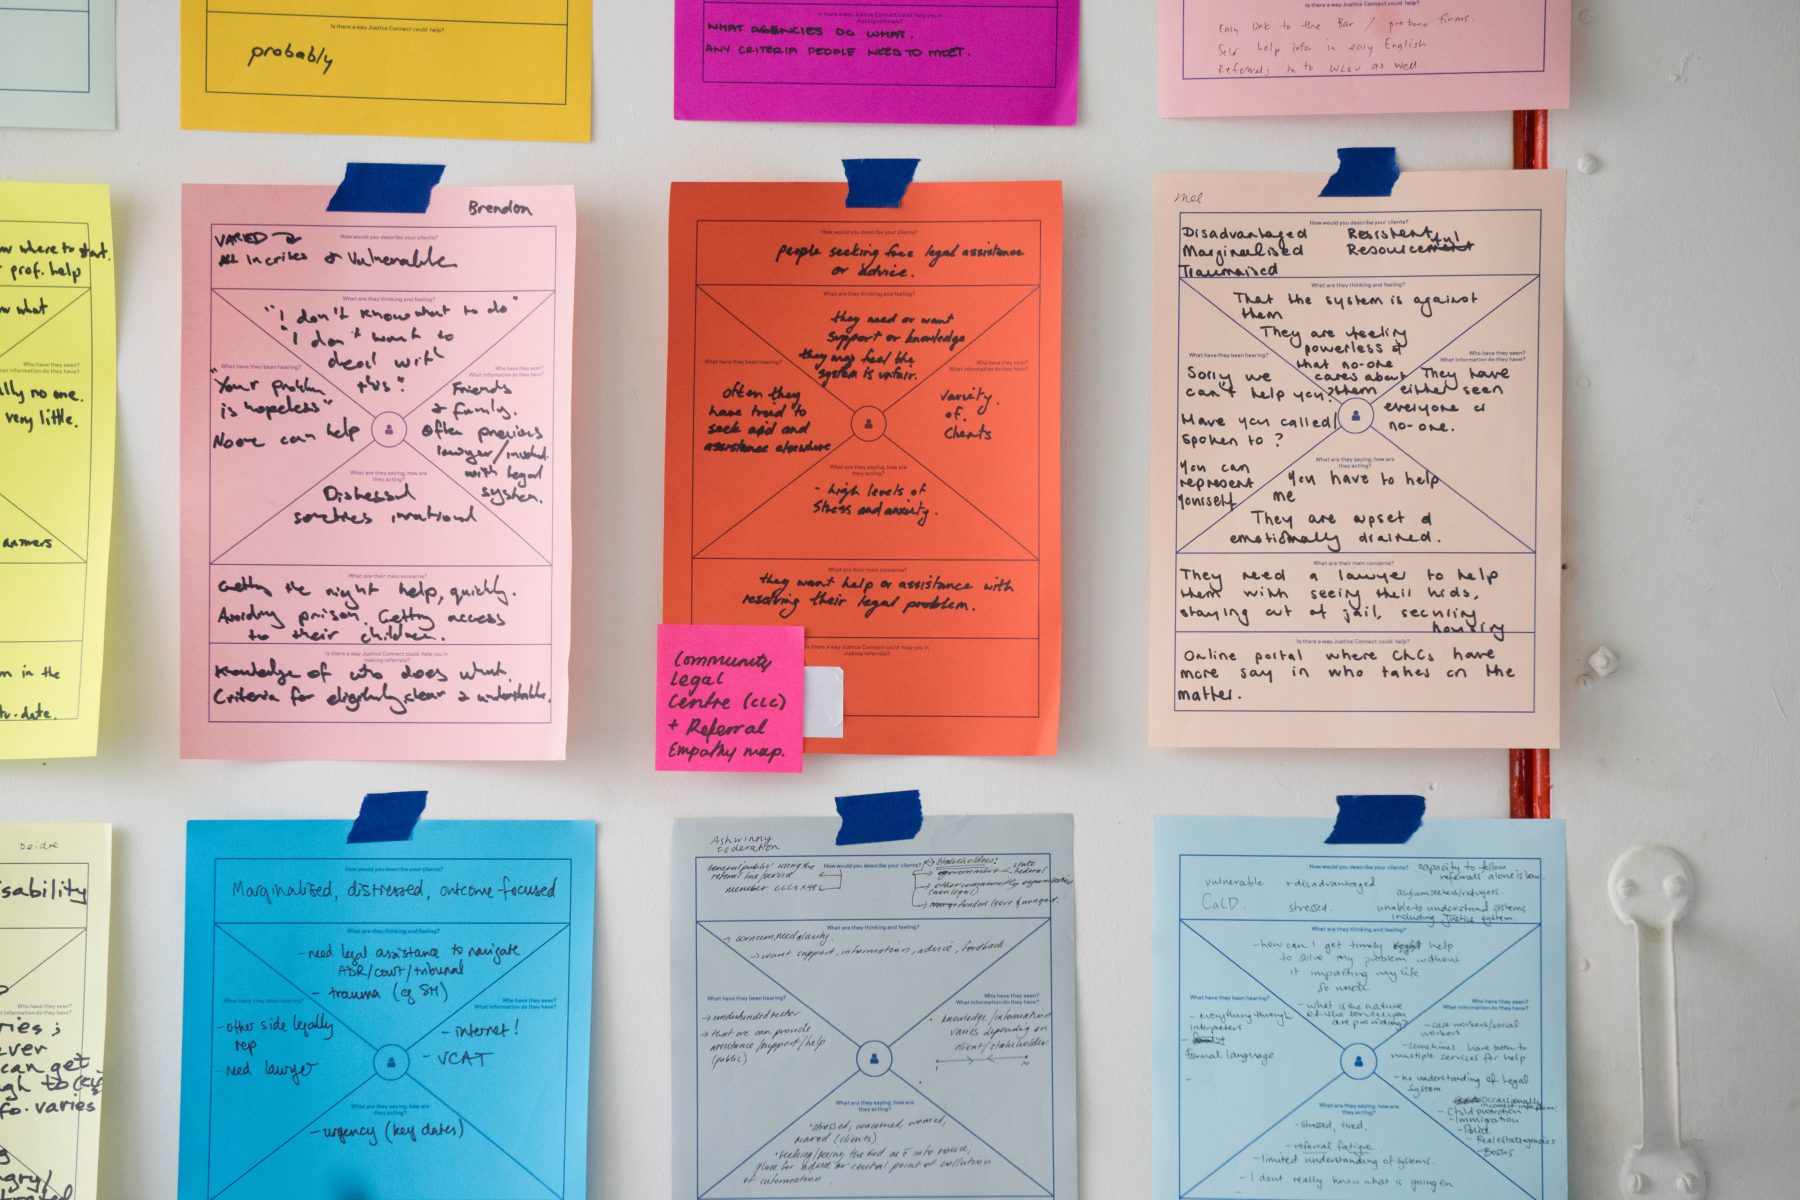 Is there a way Justice Connect could help?
probably
Is there a way Justice Connect could help you in
making referrals?
WHAT AGENCIES DO WHAT.
ANY CRITERIA PEOPLE NEED TO MEET.
Is there a way Justice Connect could help?
Easy link to the Bar / probono firms.
Self help infor in easy English
Referrals in to WLSV as well.
where to start.
prof. help
what
no one.
very little.
answers
in the
date.
Brendon
How would you describe your clients?
VARIED
All In crises & Vulnerable
What are they thinking and feeling?
"I don't know what to do"
"I don't want to
deal with
this"
What have they been hearing?
"Your problem
is hopeless"
No one can help
Who have they seen?
What information do they have?
Friends
& family.
Often previous
lawyer/involved
with legal
system.
What are they saying, how are
they acting?
Distressed
sometimes irrational
What are their main concerns?
Getting the right help, quickly.
Avoiding prison. Getting access
to their children.
Is there a way Justice Connect could help you in
making referrals?
Knowledge of who does what.
Criteria for eligibility clear & understandable.
How would you describe your clients?
people seeking free legal assistance
or advice.
What are they thinking and feeling?
they need or want
support or knowledge
they may feel the
system is unfair.
What have they been hearing?
often they
have tried to
seek aid and
assistance elsewhere
Who have they seen?
What information do they have?
variety
of
clients
What are they saying, how are
they acting?
- high levels of
stress and anxiety.
What are their main concerns?
they want help or assistance with
resolving their legal problem.
Is there a way Justice Connect could help you in
making referrals?
Community
Legal
Centre (CLC)
+ Referral
Empathy map.
Mel
How would you describe your clients?
Disadvantaged Resistent
Marginalised Resourceful
Traumatised
What are they thinking and feeling?
That the system is against
them
They are feeling
powerless &
that no-one
cares about
them
What have they been hearing?
Sorry, we
can't help you?
Have you called/
spoken to?
You can
represent
yourself
Who have they seen?
What information do they have?
They have
either seen
everyone or
no-one.
What are they saying, how are
they acting?
You have to help
me
They are upset &
emotionally drained.
What are their main concerns?
They need a lawyer to help
them with seeing their kids,
staying out of jail, securing
housing
Is there a way Justice Connect could help?
Online portal where CLCs have
more say in who takes on the
matter.
Deidre
disability
ever
can get
info. varies
How would you describe your clients?
Marginalised, distressed, outcome focused
What are they thinking and feeling?
- need legal assistance to navigate
ADR/court/tribunal
- trauma (eg SH)
What have they been hearing?
- other side legally
rep
- need lawyer
Who have they seen?
What information do they have?
- internet!
- VCAT
What are they saying, how are
they acting?
- urgency (key dates)
Ashwinny
Federation
How would you describe your clients?
General 'public' using the
referral line/service
member CLCs x 48
Stakeholders:
government
state
federal
other community organisations
(non legal)
What are they thinking and feeling?
→ concern, need clarity
→ want support, information, advice, feedback.
What have they been hearing?
→ underfunded sector
→ that we can provide
assistance/support/help
(public)
Who have they seen?
What information do they have?
knowledge/information
varies depending on
client/stakeholder
What are they saying, how are
they acting?
stressed, concerned, worried,
(clients)
place for advice or central point of collation
of information
How would you describe your clients?
vulnerable + disadvantaged
CALD. stressed.
capacity to follow
referrals alone is low.
asylum seekers/refugees.
unable to understand systems
including justice system.
What are they thinking and feeling?
- how can I get timely help
to solve my problem without
it impacting my life
so much
- what is the nature
of the service you
are providing?
What have they been hearing?
- everything through
interpreters
Formal language
Who have they seen?
What information do they have?
- case workers/social
workers
- sometimes have been to
multiple services for help
- no understanding of legal
system
- occasionally
incorrect info from:
- Child protection
- Immigration
- Police
- Real estate agencies
- Bosses
What are they saying, how are
they acting?
- stressed, tired.
- referral fatigue
- limited understanding of systems.
- I dont really know what is going on